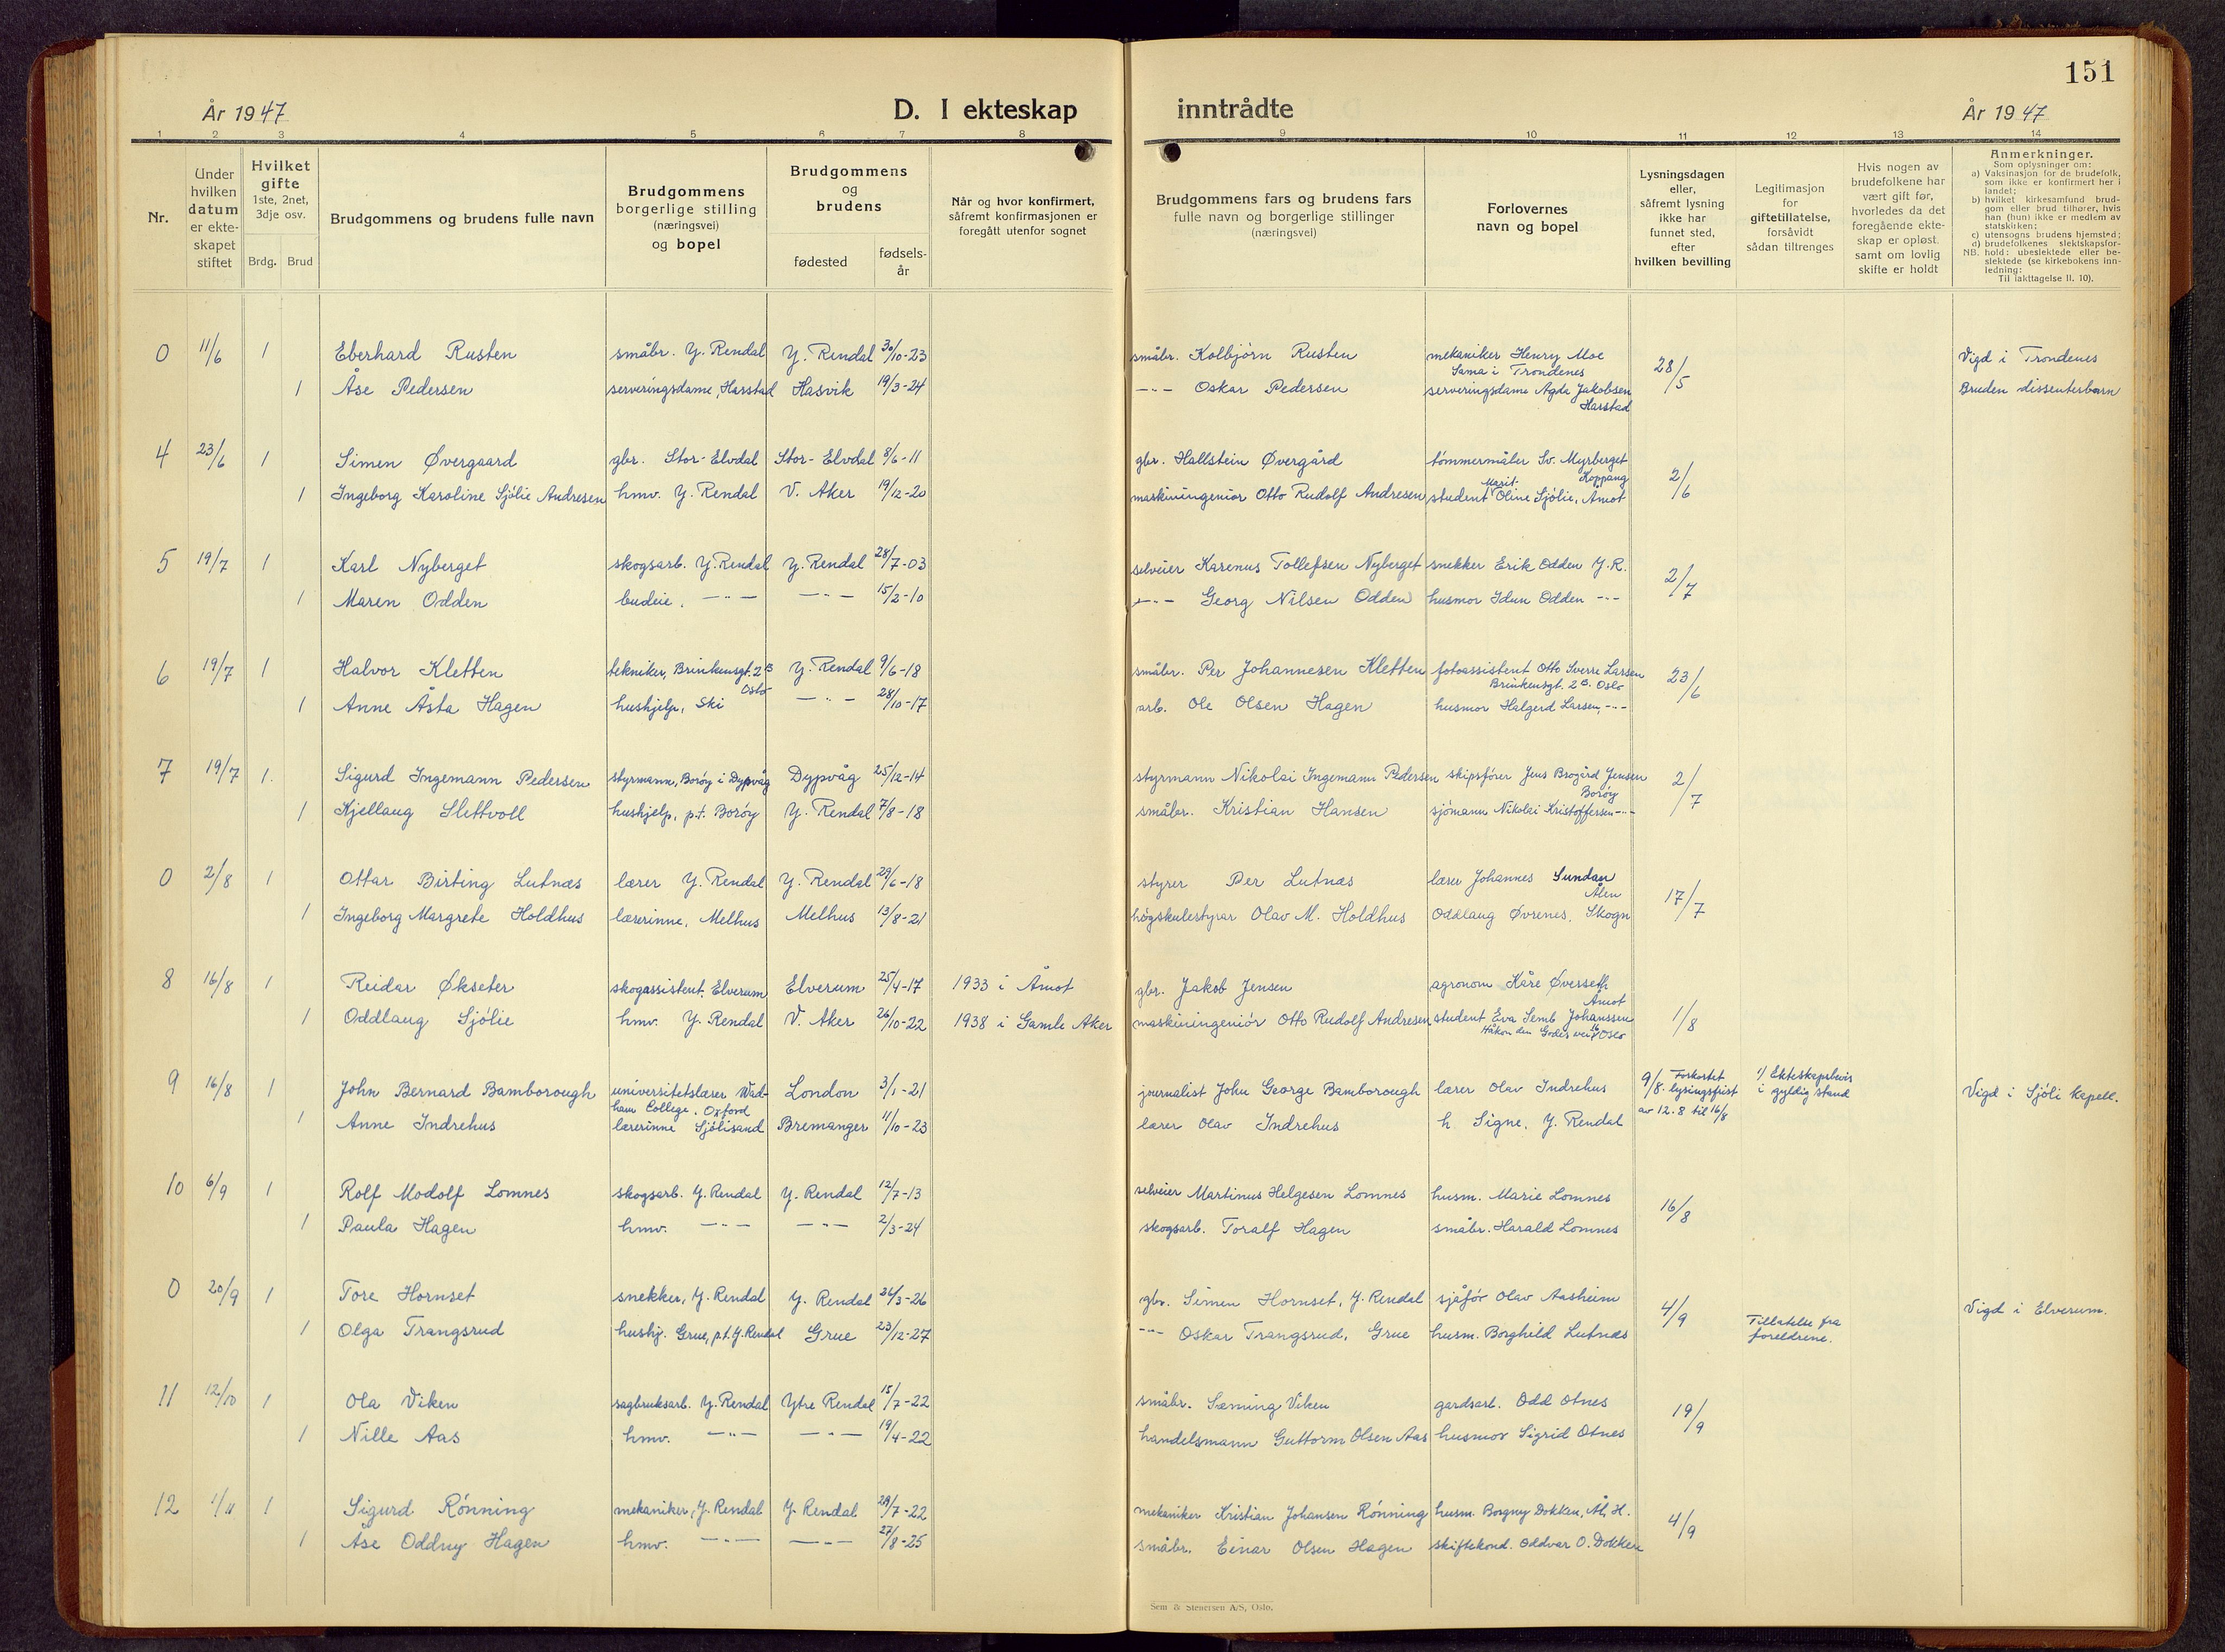 151
År 1947 D. I ekteskap inntrådte År 1947
1 2 3 4 5 6 7 8 9 10 11 12 13 14
Nr.
Under hvilken datum er ekte-skapet stiftet
Hvilket gifte 1ste, 2net, 3dje osv.
Brdg. Brud
Brudgommens og brudens fulle navn
Brudgommens borgerlige stilling (næringsvei) og bopel
Brudgommens og brudens
fødested fødsels-år
Når og hvor konfirmert, såfremt konfirmasjonen er foregått utenfor sognet
Brudgommens fars og brudens fars fulle navn og borgerlige stillinger (næringsvei)
Forlovernes navn og bopel
Lysningsdagen eller, såfremt lysning ikke har funnet sted, efter hvilken bevilling
Legitimasjon for giftetillatelse, forsåvidt sådan tiltrenges
Hvis nogen av brudefolkene har vært gift før, hvorledes da det foregående ekte-skap er opløst. samt om lovlig skifte er holdt
Anmerkninger.
Som oplysninger om:
a) Vaksinasjon for de brudefolk, som ikke er konfirmert her i landet;
b) hvilket kirkesamfund brud-gom eller brud tilhører, hvis han (hun) ikke er medlem av statskirken;
c) utensogns brudens hjemsted;
d) brudefolkenes slektskapsfor-hold: ubeslektede eller be-slektede (se kirkebokens inn-ledning:
NB.
Til iakttagelse II. 10).
0 11/6 1 Eberhard Rusten småbr. Y. Rendal Y. Rendal 30/10-23 småbr. Kolbjörn Rusten mekaniker Henry Moe Sama i Trondenes 28/5 Vigd i Trondenes
1 Åse Pedersen serveringsdame, Harstad Hasvik 19/3-24 -"- Oskar Pedersen serveringsdame Agde Jakobsen Harstad Bruden dissenterbarn
4 23/6 1 Simen Øvergaard gbr. Stor-Elvdal Stor-Elvdal 8/6-11 gbr. Hallstein Övergård tömmermåler Sv. Myrberget Koppang 2/6
1 Ingeborg Karoline Sjölie Andresen hmv. Y. Rendal V. Aker 19/12-20 maskiningeniör Otto Rudolf Andresen student Marit Oline Sjölie, Åmot
5 19/7 1 Karl Nyberget skogsarb. Y. Rendal Y. Rendal 28/7-03 selveier Karenus Tollefsen Nyberget snekker Erik Odden Y.R. 2/7
1 Maren Odden budeie. -"- -"- 15/2-10 -"- Georg Nilsen Odden husmor Idun Odden -"-
6 19/7 1 Halvor Kletten tekniker, Brinkensgt. 2B Oslo Y. Rendal 9/6-18 småbr. Per Johannesen Kletten fotoassistent Otto Sverre Larsen Brinkensgt. 2B. Oslo 23/6
1 Anne Åsta Hagen hushjelp, Ski -"- 28/10-17 arb. Ole Olsen Hagen husmor Halgerd Larsen, -"-
7 19/7 1. Sigurd Ingemann Pedersen styrmann, Boröy i Dypvåg Dypvåg 25/12-14 styrmann Nikolai Ingemann Pedersen skipsförer Jens Brogård Jensen Boröy 2/7
1 Kjellaug Slettvoll hushjelp, p.t. Boröy Y. Rendal 7/8-18 småbr. Kristian Hansen sjömann Nikolai Kristoffersen -"-
0 2/8 1 Ottar Birting Lutnæs lærer Y. Rendal Y. Rendal 29/6-18 styrer Per Lutnæs lærer Johannes Sundan Ålen 17/7
1 Ingeborg Margrete Holdhus lærerinne, Melhus Melhus 13/8-21 högskulestyrar Olav M. Holdhus Oddlaug Övrenes, Skogn
8 16/8 1 Reidar Økseter skogassistent, Elverum Elverum 25/4-17 1933 i Åmot gbr. Jakob Jensen agronom Kåre Överseth Åmot 1/8
1 Oddlaug Sjölie hmv. Y. Rendal V. Aker 26/10-22 1938 i Gamle Aker maskiningeniör Otto Rudolf Andresen student Eva Semb Johanssen Håkon den Godes vei 16 Oslo
9 16/8 1 John Bernard Bamborough universitetslærer Wad-ham College, Oxford London 3/1-21 journalist John George Bamborough lærer Olav Indrehus 9/8. Forkortet lysingsfrist av 12.8 til 16/8 1) Ekteskapsbevis i gyldig stand Vigd i Sjöli kapell.
1 Anne Indrehus lærerinne Sjölisand Bremanger 11/10-23 lærer Olav Indrehus h. Signe, Y. Rendal
10 6/9 1 Rolf Modolf Lomnes skogsarb. Y. Rendal Y. Rendal 12/7-13 selveier Martinus Helgesen Lomnes husm. Marie Lomnes 16/8
1 Paula Hagen hmv. -"- -"- 2/3-24 skogsarb. Toralf Hagen småbr. Harald Lomnes
0 20/9 1 Tore Hornset snekker, Y. Rendal Y. Rendal 26/3-26 gbr. Simen Hornset, Y. Rendal sjåför Olav Aasheim 4/9 Vigd i Elverum.
1 Olga Trangsrud hushj. Grue, p.t. Y. Rendal Grue 23/12-27 -"- Oskar Trangsrud, Grue husm. Borghild Lutnæs Tillatelse fra foreldrene.
11 12/10 1 Ola Viken sagbruksarb. Y. Rendal Ytre Rendal 15/7-22 småbr. Sæming Viken gardsarb. Odd Otnes 19/9
1 Nille Aas hmv. -"- -"- 19/4-22 handelsmann Guttorm Olsen Aas husmor Sigrid Otnes
12 1/11 1 Sigurd Rönning mekaniker, Y. Rendal Y. Rendal 29/7-22 mekaniker Kristian Johansen Rönning husm. Borgny Dokken, Al, H. 4/9
1 Åse Oddny Hagen hmv. -"- -"- 27/8-25 småbr. Einar Olsen Hagen skiftekond. Oddvar O. Dokken
Sem & Stenersen A/S, Oslo.